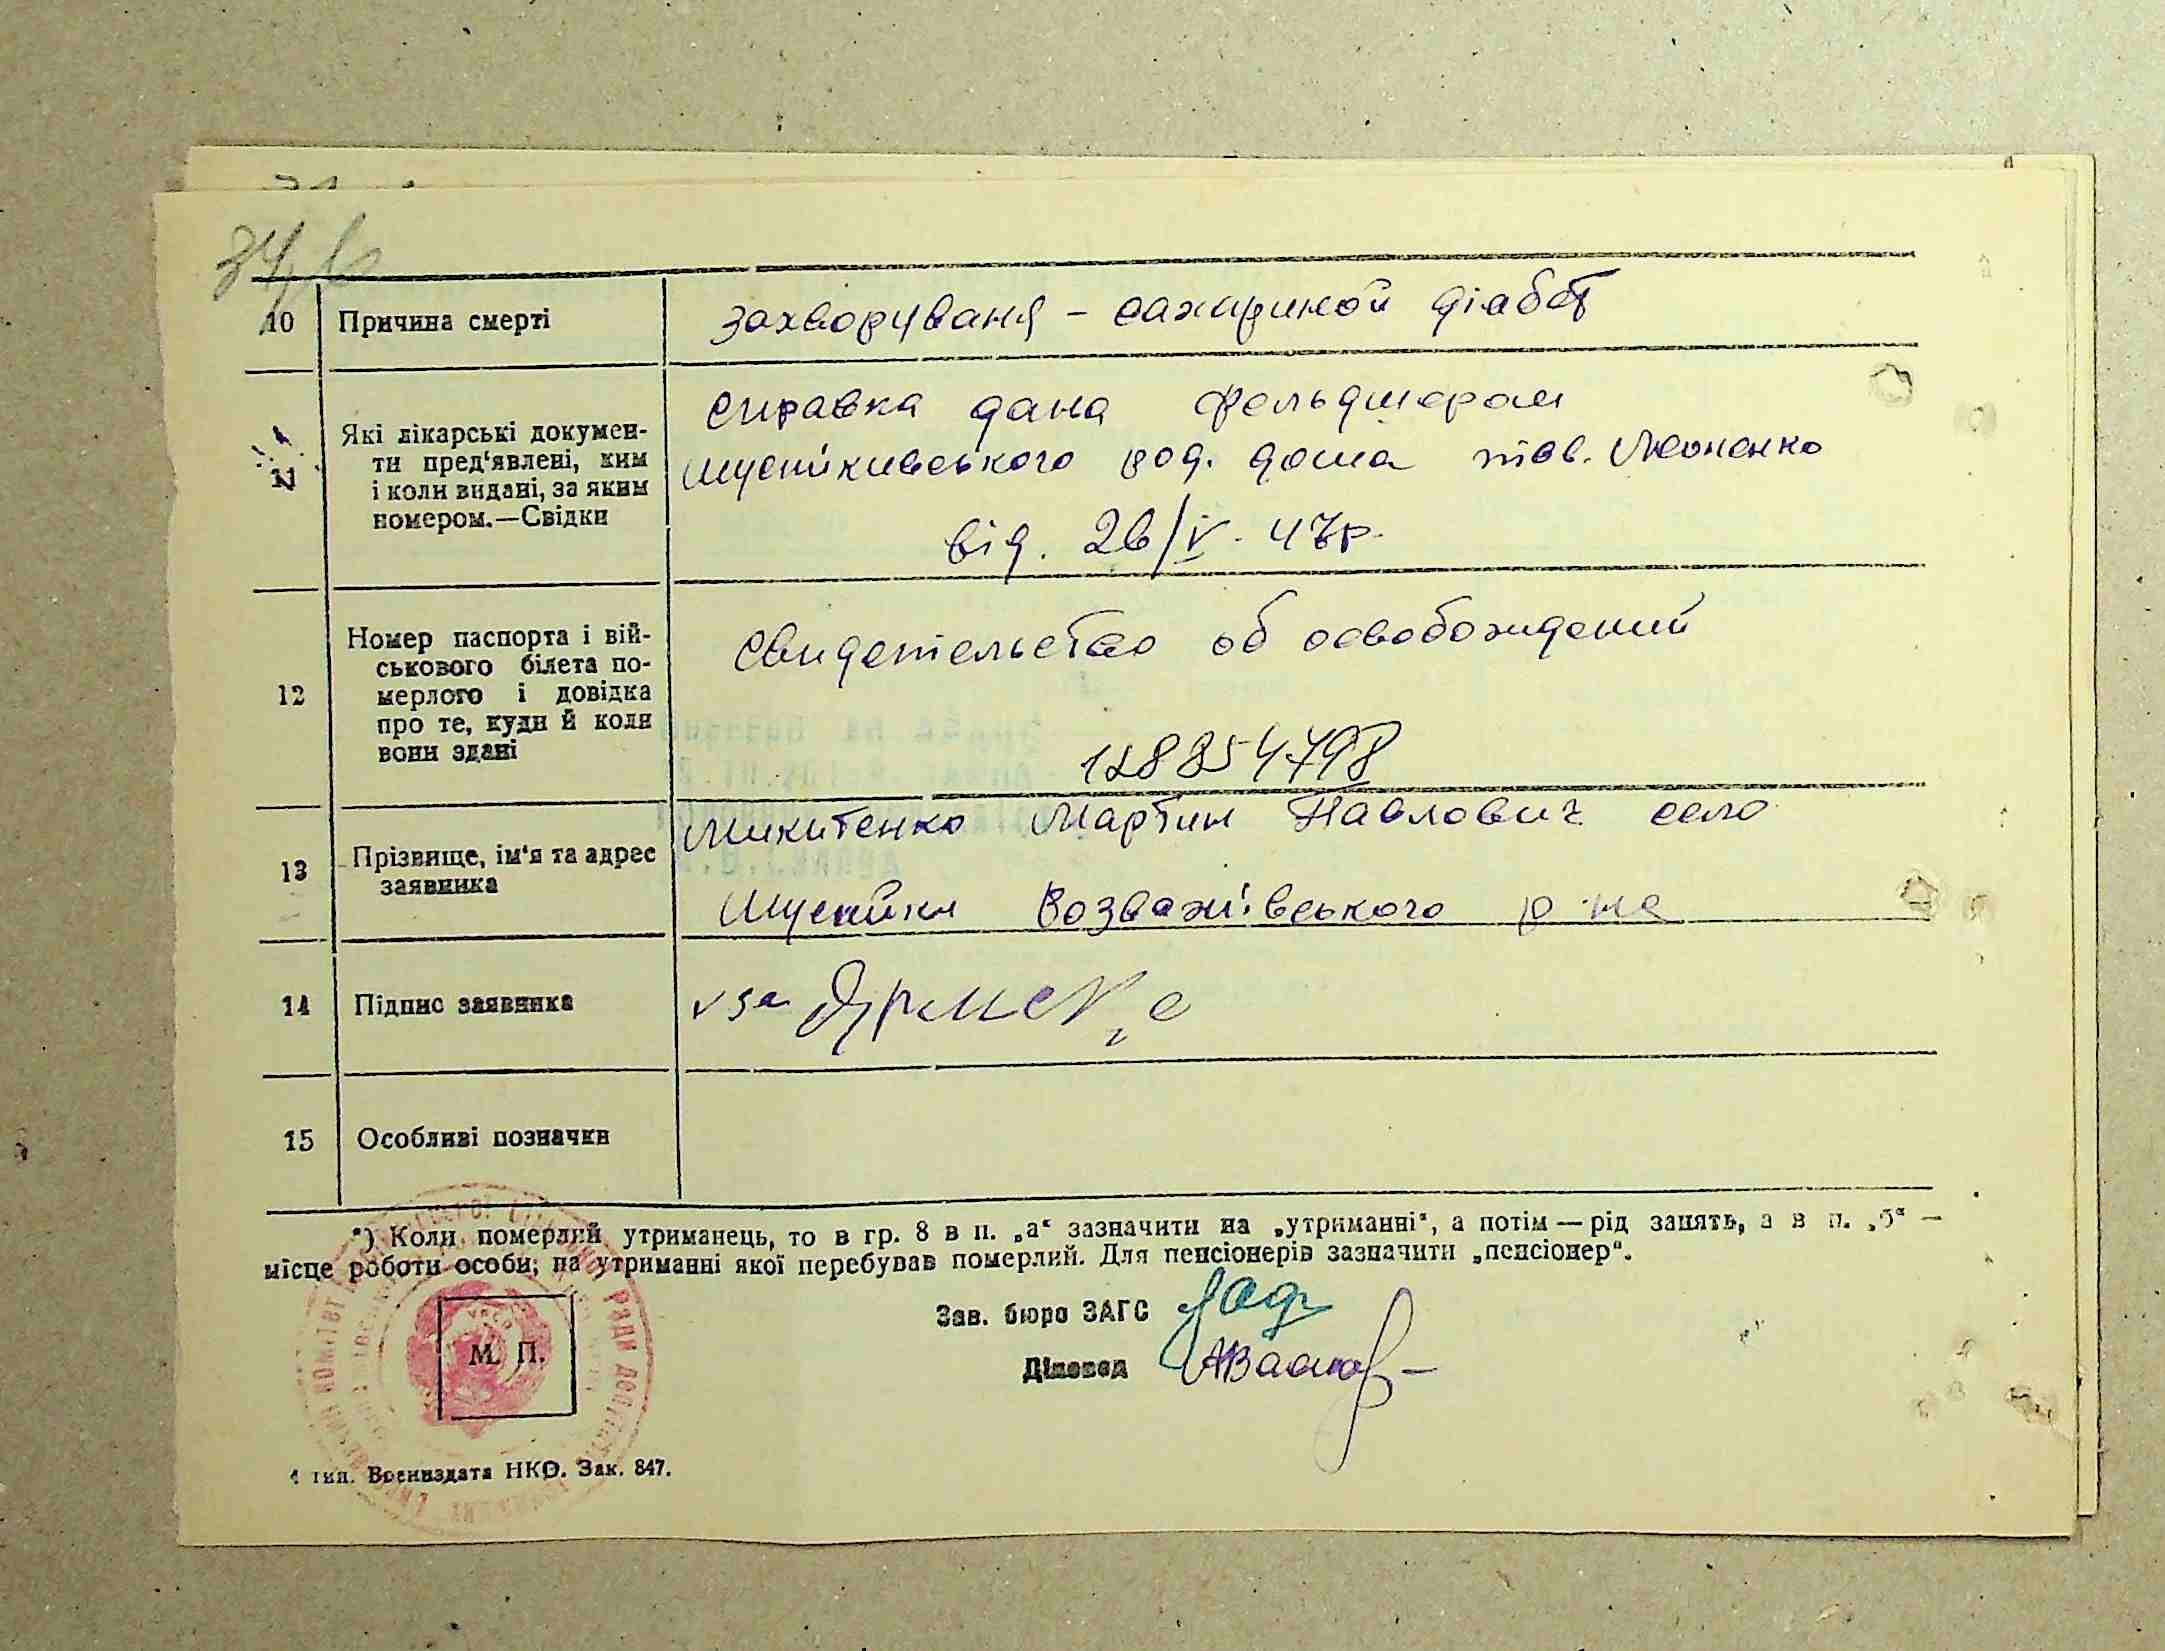 10 Причина смерті захворування – сахарной діабет
11 Які лікарські докумен-
ти пред'явлені, ким
і коли видані, за яким
номером.—Свідки
справка дана фельдшером
Шуспиківського род. дома тов.
від. 26/V. 47р.
12 Номер паспорта і вій-
ськового білета по-
мерлого і довідка
про те, куди й коли
вони здані
Свидетельство об освобождений
128854798
13 Прізвище, ім'я та адрес
заявника
Микитенко Мартин Павлович село
Розважівського р-на
14 Підпис заявника
15 Особливі позначки
*) Коли померлий утриманець, то в гр. 8 в п. „а“ зазначити на „утриманні“, а потім — рід занять, а в п. „б“ —
місце роботи особи, на утриманні якої перебував померлий. Для пенсіонерів зазначити „пенсіонер“.
Зав. бюро ЗАГС
Діловод
М. П.
тип. Воениздата НКО. Зак. 847.